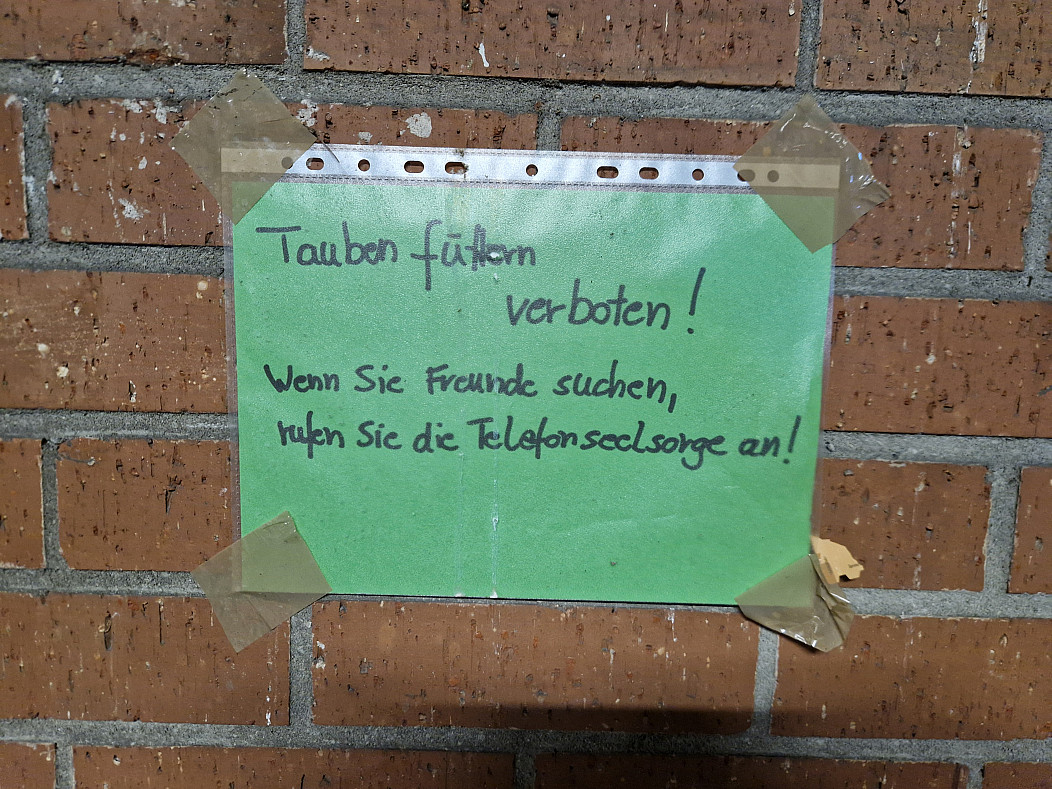 Tauben füttern
verboten!
Wenn Sie Freunde suchen,
rufen Sie die Telefonseelsorge an!